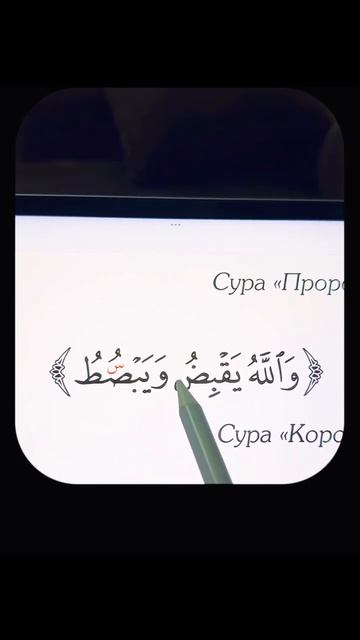 Сура «Проро
﴿وَٱللَّهُ يَقۡبِضُ وَيَبۡصُۜطُ﴾
Сура «Коро